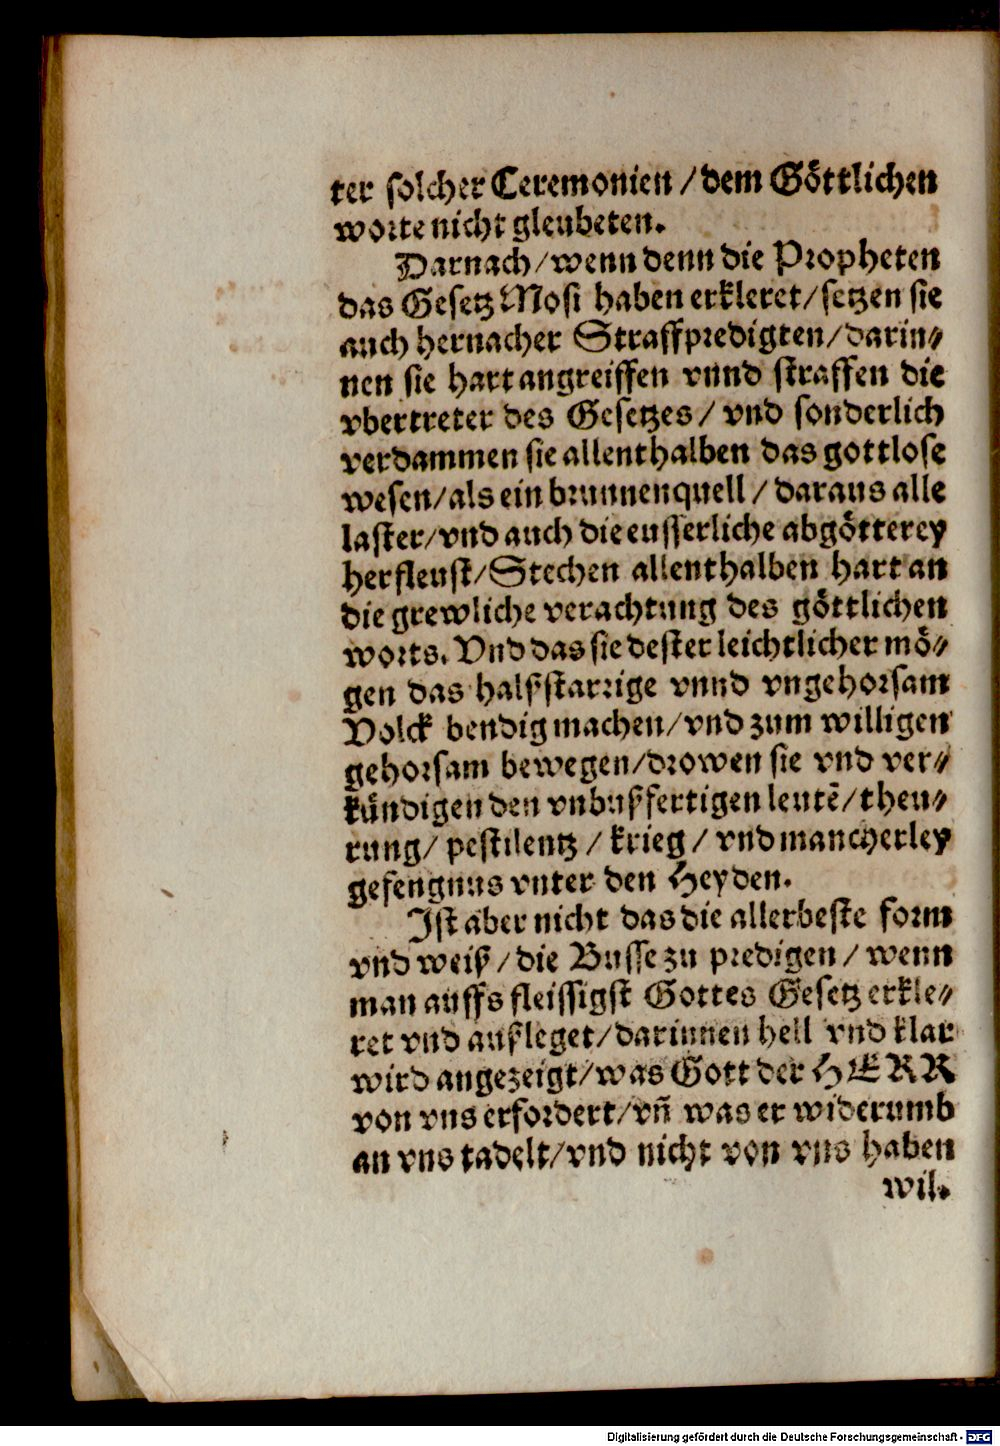 ter solcher Ceremonien / dem Göttlichen
worte nicht gleubeten.
Darnach / wenn denn die Propheten
das Gesetz Mosi haben erkleret / setzen sie
auch hernacher Straffpredigten / darin⸗
nen sie hart angreiffen vnnd straffen die
vbertreter des Gesetzes / vnd sonderlich
verdammen sie allenthalben das gottlose
wesen / als ein brunnenquell / daraus alle
laster / vnd auch die eusserliche abgötterey
herfleust / Stechen allenthalben hart an
die grewliche verachtung des göttlichen
worts. Vnd das sie dester leichtlicher mö⸗
gen das halßstarrige vnnd vngehorsam
Volck bendig machen / vnd zum willigen
gehorsam bewegen / drowen sie vnd ver⸗
kündigen den vnbußfertigen leutē / theu⸗
rung / pestilentz / krieg / vnd mancherley
gefengnus vnter den Heyden.
Ist aber nicht das die allerbeste form
vnd weiß / die Busse zu predigen / wenn
man auffs fleissigst Gottes Gesetz erkle⸗
ret vnd außleget / darinnen hell vnd klar
wird angezeigt / was Gott der HERR
von vns erfordert / vn̄ was er widerumb
an vns tadelt / vnd nicht von vns haben
wil.
Digitalisierung gefördert durch die Deutsche Forschungsgemeinschaft - DFG